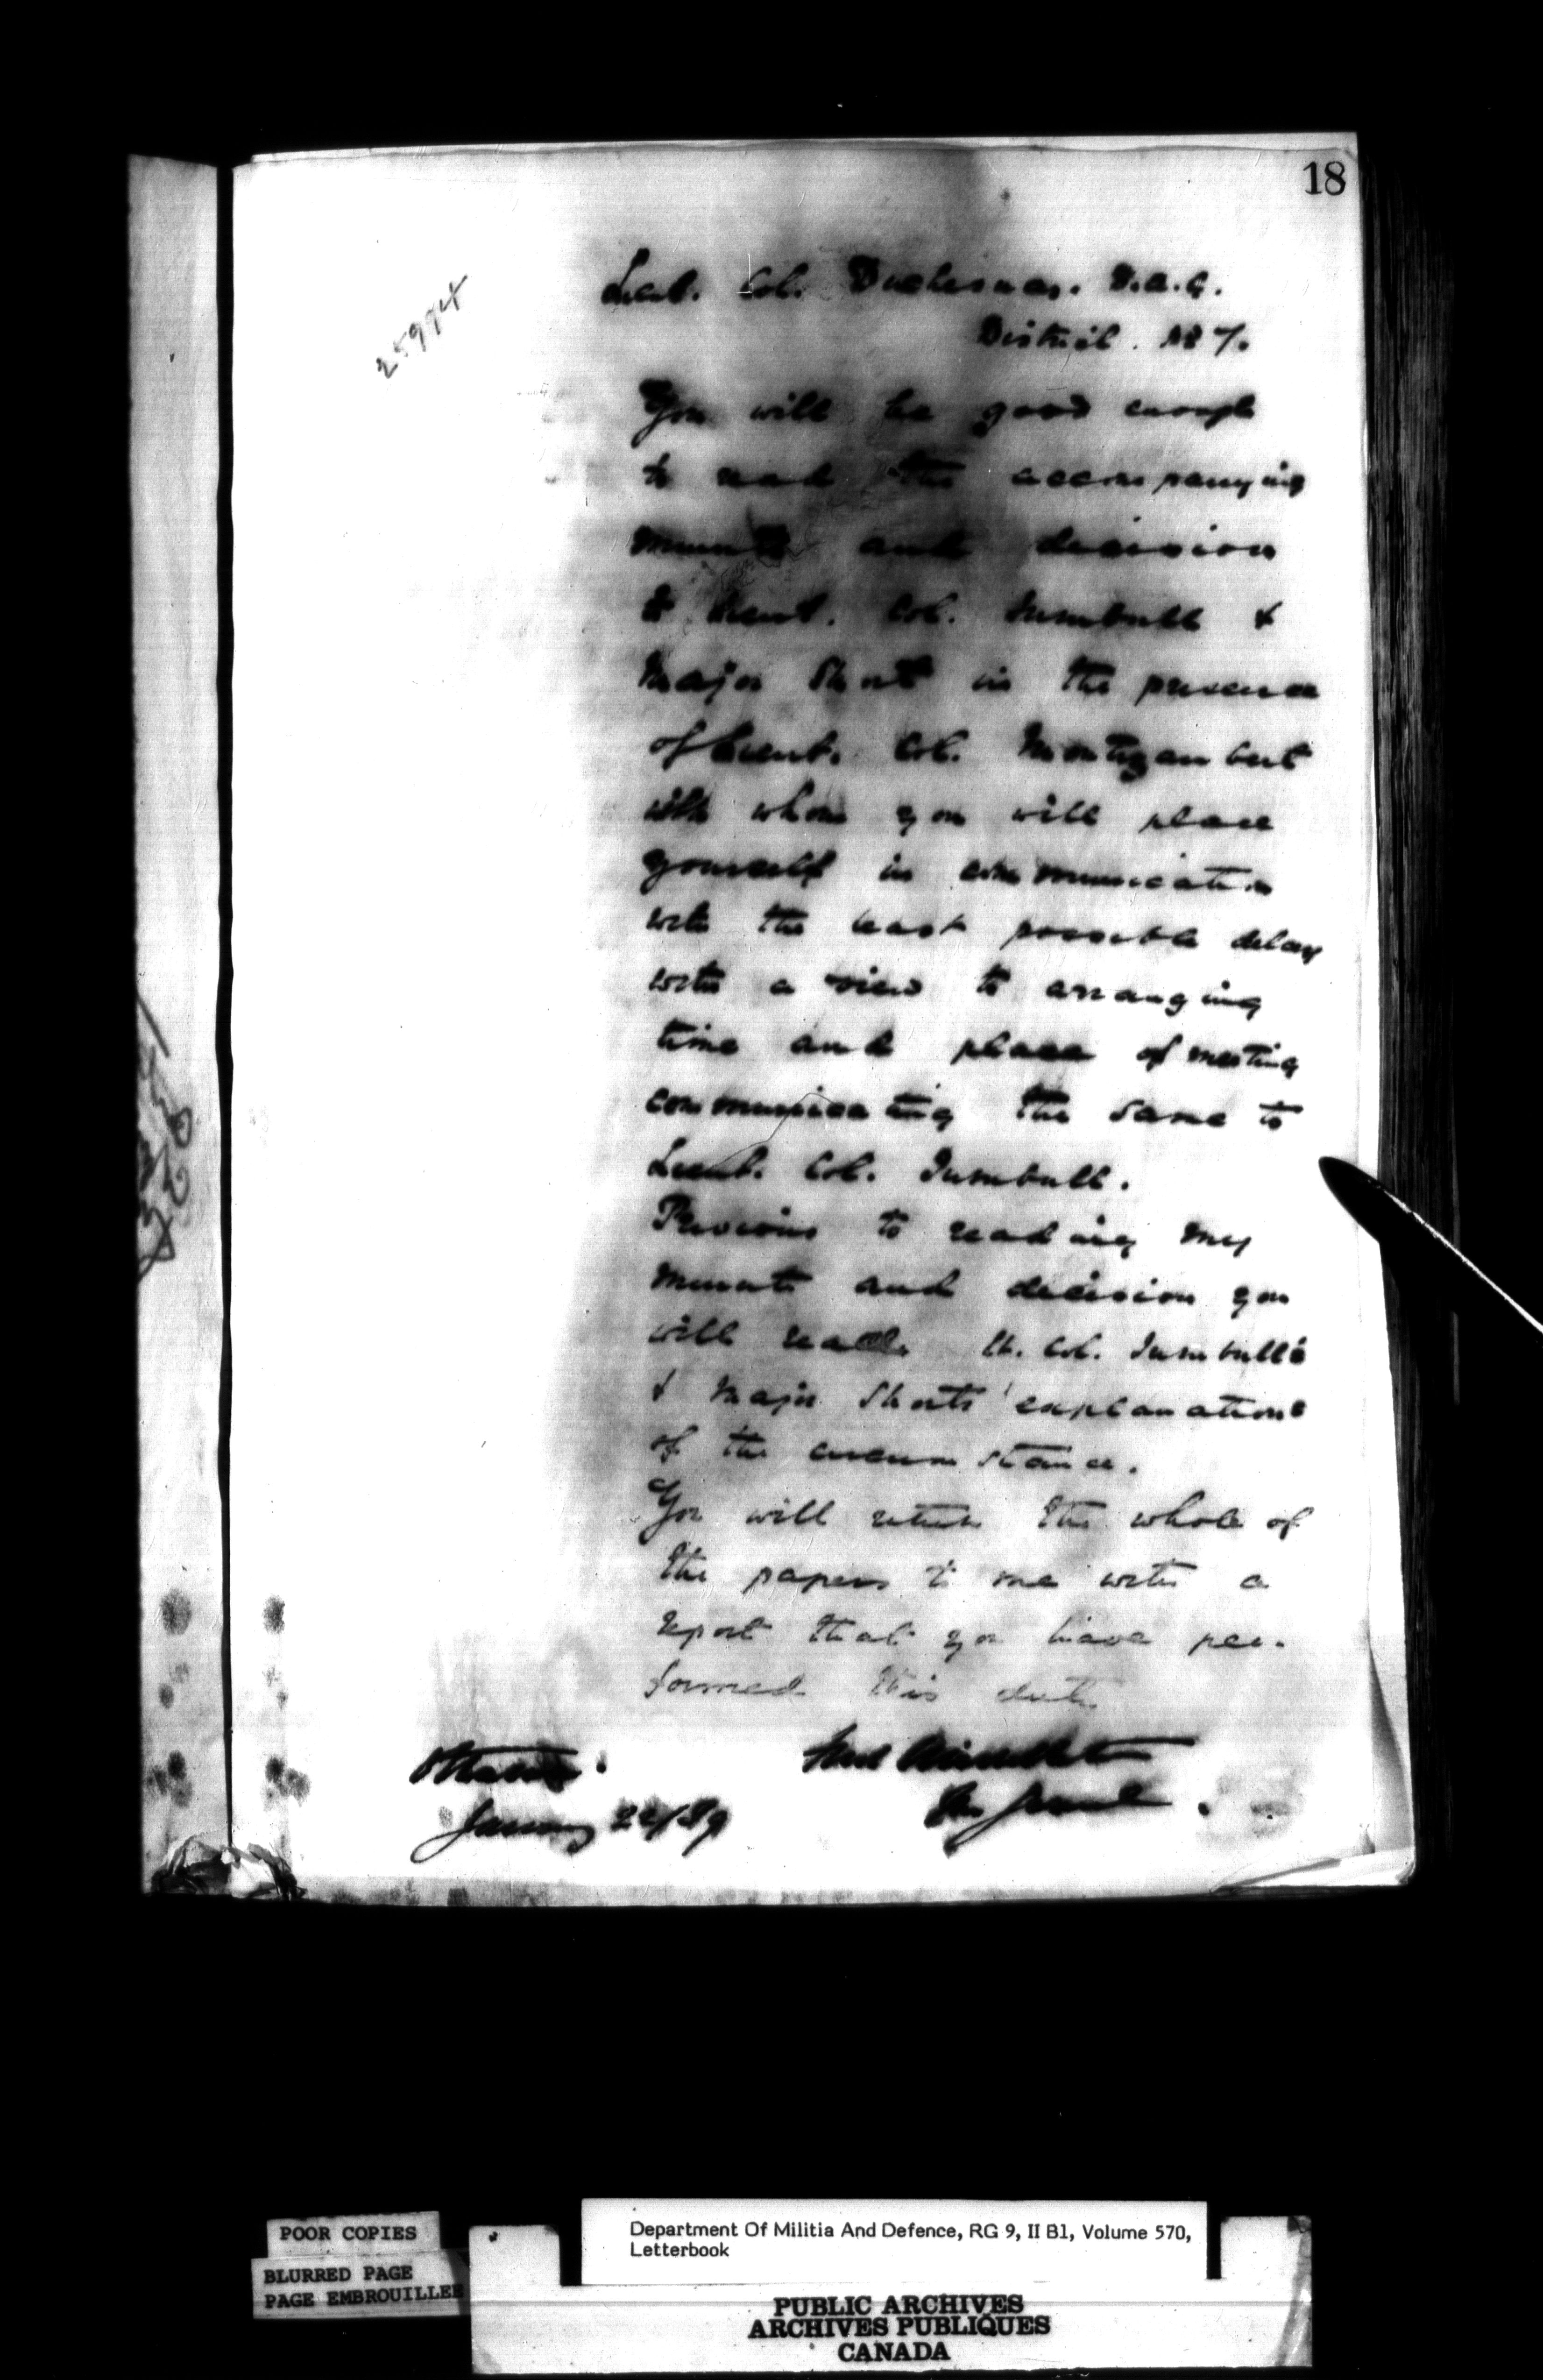 18
25974
Lieut. Col. Duchesnay. D.A.G.
District. No 7.
You will be good enough
to read the accompanying
minute and decision
to Lieut. Col. Turnbull &
Major Short in the presence
of Lieut. Col. Montizambert
with whom you will place
yourself in communication
with the least possible delay
with a view to arranging
time and place of meeting
communicating the same to
Lieut. Col. Turnbull.
Previous to reading my
minute and decision you
will read Lt. Col. Turnbull's
& Major Short's explanations
of the circumstance.
You will return the whole of
the papers to me with a
report that you have per-
formed this duty
Fred Middleton
Ottawa
January 22/89
POOR COPIES
BLURRED PAGE
PAGE EMBROUILLEE
Department Of Militia And Defence, RG 9, II B1, Volume 570,
Letterbook
PUBLIC ARCHIVES
ARCHIVES PUBLIQUES
CANADA